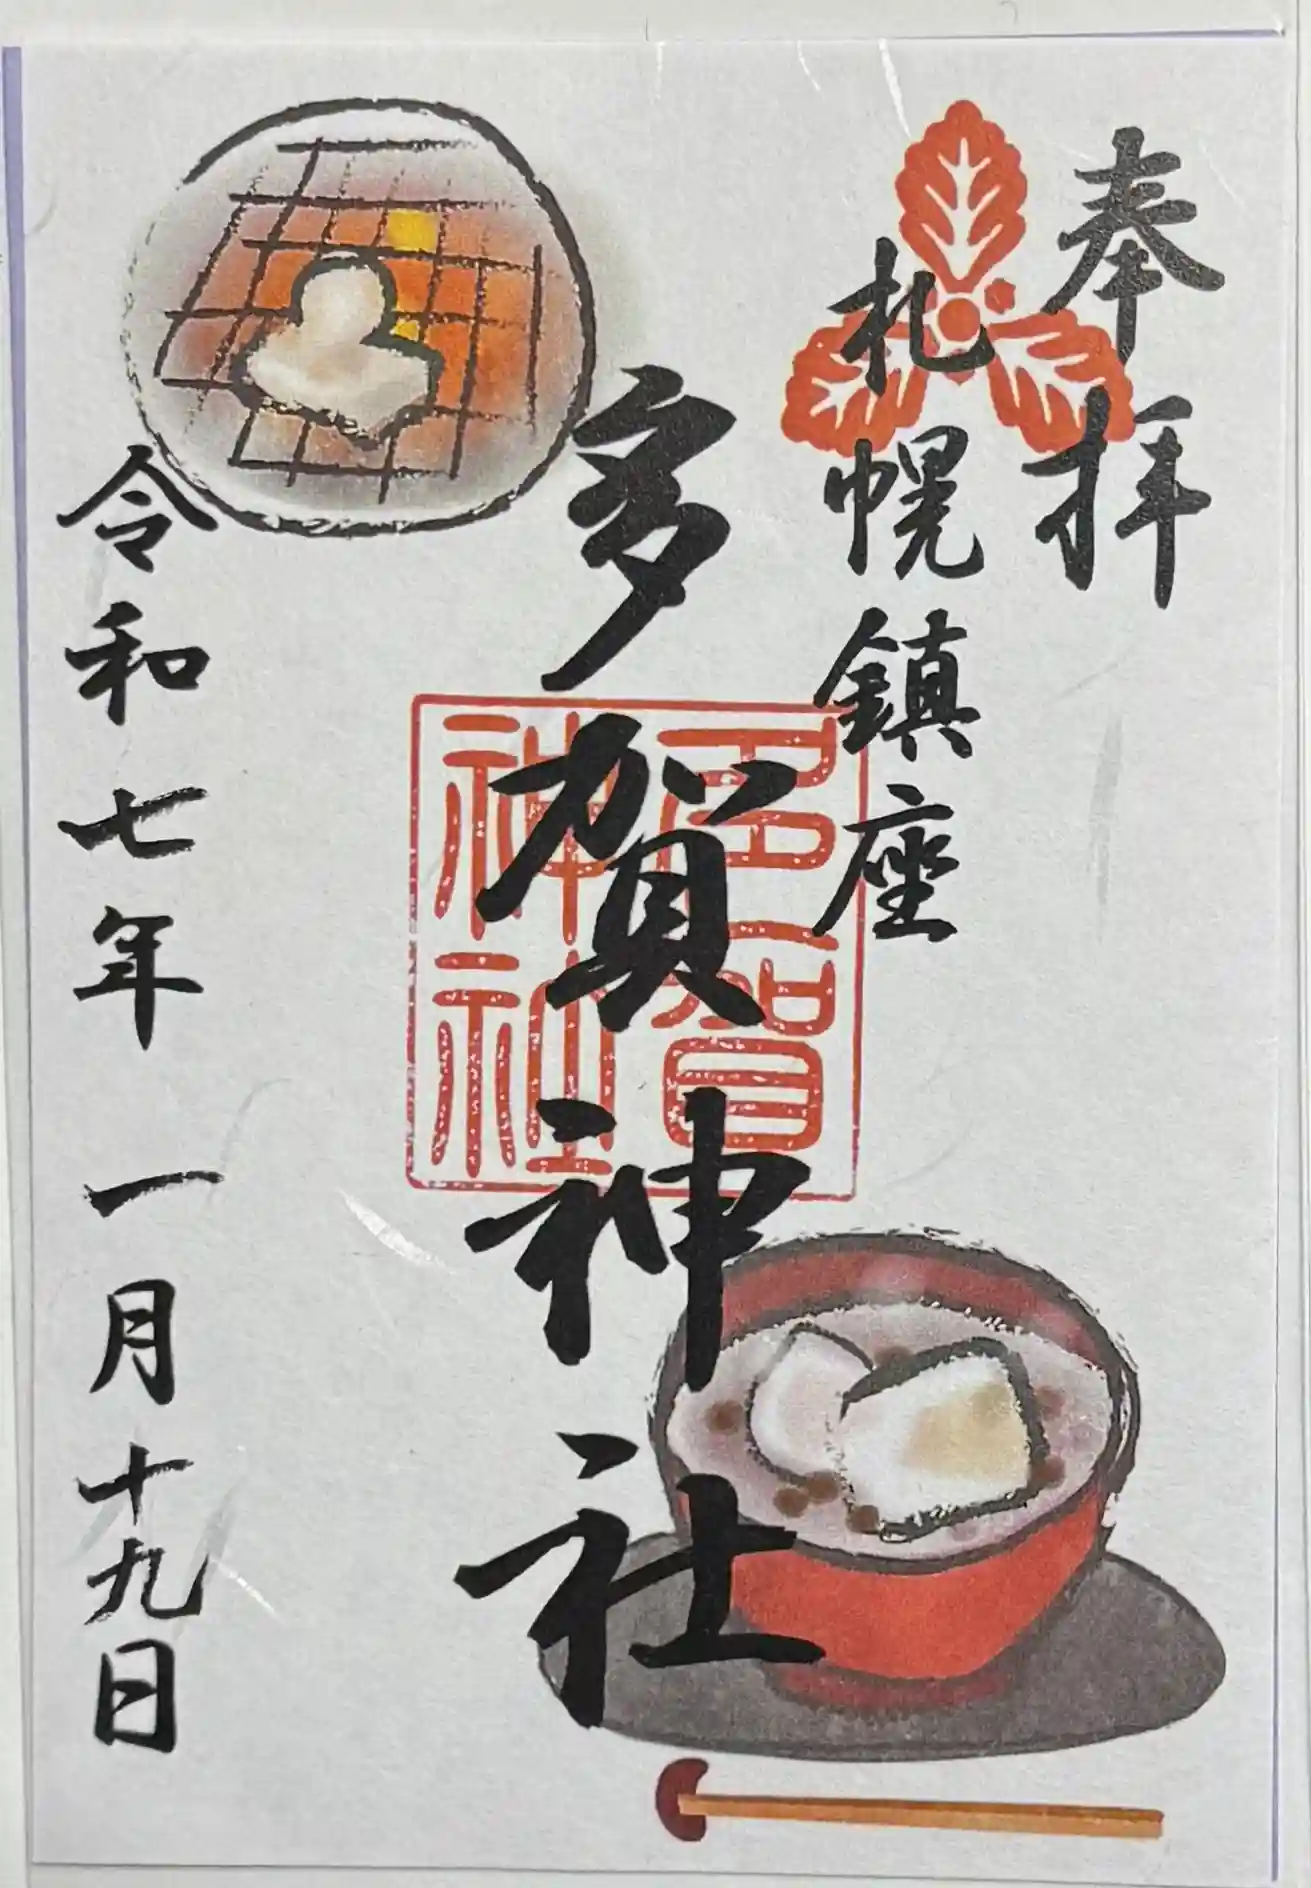 奉拝
札幌鎮座
多賀神社
多賀神社
令和七年 一月十九日